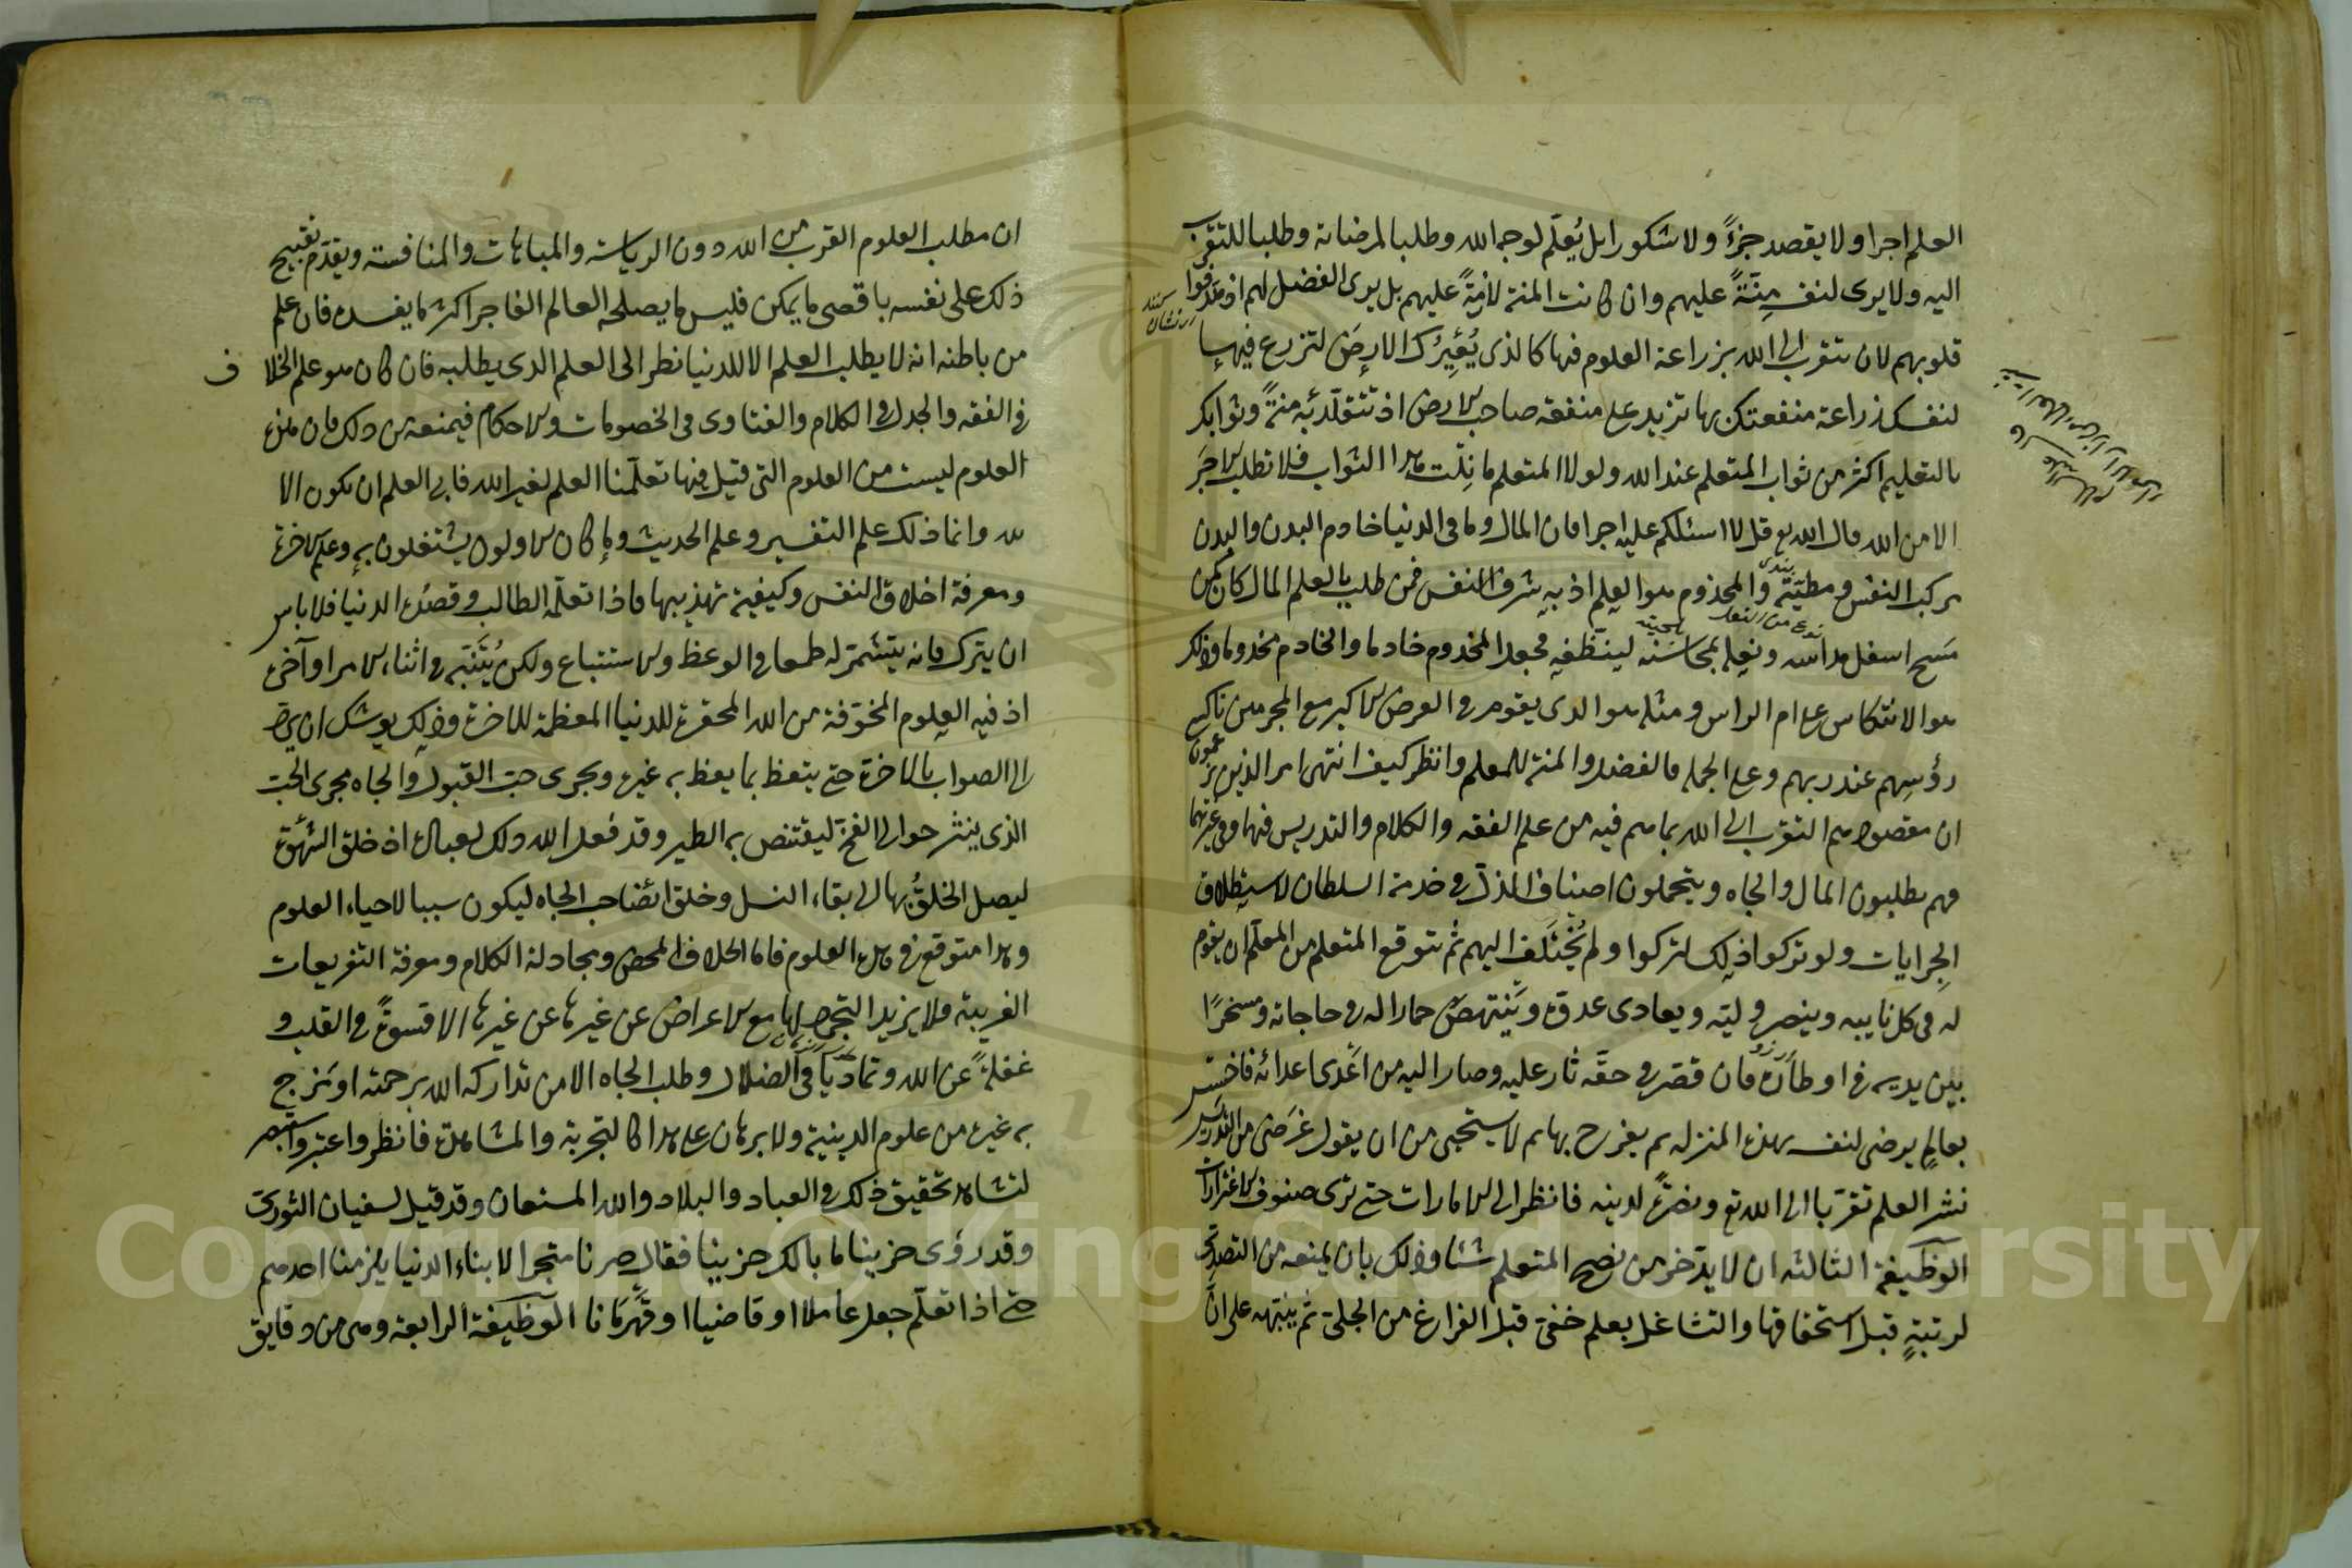 العلم اجرا ولا يقصد جزءً ولا شكورا بل يُعلّم لوجه الله وطلبا لمرضاته وطلبا للتقرب
اليه ولا يرى لنفسه مِنّةً عليهم وان كانت المنة لازمةً عليهم بل يرى الفضل لهم اذ
قلوبهم لان تتقرب الى الله بزراعة العلوم فيها كالذى يُعِيرُك الارضَ لتزرع فيها
لنفسك زراعة منفعتك بها تزيد على منفعة صاحب الارض اذ تتقلّد به منةً وثوابك
بالتعليم اكثر من ثواب المتعلم عند الله ولولا المتعلم ما نِلْت هذا الثواب فلا تطلب اجرَ
الا من الله قال الله تع قل لا اسئلكم عليه اجرا فان المال وما فى الدنيا خادم البدن والبدن
مركب النفس و مطيّته والمخدوم هو العلم اذ به شرف النفس فمن طلب بالعلم المال كان كمن
مَسَح اسفل مداسه ونعله بمحاسنه لينظّفه فجعل المخدوم خادما والخادم مخدوما وذلك
هو الانتكاس على ام الراس ومثله هو الذى يقوم فى العرض الاكبر مع المجرمين ناكسى
رؤسِهم عند ربهم وعلى الجملة فالفضل والمنة للمعلم وانظر كيف انتهى امر الذين يزعمون
ان مقصودهم التقرب الى الله بما هم فيه من علم الفقه والكلام والتدريس فيهما وفى غيرهما
فهم يطلبون المال والجاه ويتحملون اصناف الذل فى خدمة السلطان لاستطلاق
الجِرايات ولو تركوا ذلك لتركوا ولم يُختَلَف اليهم ثم يتوقع المتعلم من المعلّم ان يقوم
له فى كل نايبه وينصر وليّه ويعادى عدوّه وينتهض حمارا له فى حاجاته ومسخرًا
بين يديه فى اوطاره فان قصّر فى حقّه ثار عليه وصار اليه من اعْدى اعدائه فاخسس
بعالمٍ يرضى لنفسه بهذه المنزلة ثم يفرح بها ثم لا يستحيى من ان يقول غَرَضى من التدريس
نشر العلم تقرّبا الى الله تع ونصرةً لدينه فانظر الى الامارات حتى ترى صنوف الاغترارات
الوظيفة الثالثه ان لا يدّخر من نصح المتعلم شئا وذلك بان يمنعه من التصدّى
لرتبةٍ قبل استحقاقها والتشاغل بعلم خفىّ قبل الفراغ من الجلىّ ثم يُنبّهه على انّ
ان مطلب العلوم القرب من الله دون الرياسة والمباهات والمنافسة ويقدّم تقبيح
ذلك على نفسه باقصى ما يمكن فليس ما يصلحه العالم الفاجر اكثر مما يفسده فان علم
من باطنه انه لا يطلب العلم الا للدنيا نظر الى العلم الذى يطلبه فان كان هو علم الخلاف
فى الفقه والجدل فى الكلام والفتاوى فى الخصومات والاحكام فيمنعه من ذلك فان هذه
العلوم ليست من العلوم التى قيل فيها تعلّمنا العلم لغير الله فابى العلم ان يكون الا
لله وانما ذلك علم التفسير وعلم الحديث وما كان الاولون يشتغلون به وعلم الاخرة
ومعرفة اخلاق النفس وكيفية تهذيبها فاذا تعلّمه الطالب وقصده الدنيا فلا باس
ان يترك فانه يتشمّر له طمعا فى الوعظ والاستتباع ولكن يُتَنبّه فى اثناء الامر او آخره
اذ فيه العلوم المخوّفة من الله المحقرة للدنيا المعظمة للاخرة وذلك يوشك ان
الى الصواب بالاخرة حتى يتعظ بما يعظ به غيره ويجرى حبّ القبول والجاه مجرى الحَبّ
الذى ينثر حوالى الفخّ ليقتنص به الطير وقد فعل الله ذلك بعباده اذ خلق الشهوة
ليصل الخلقُ بها الى بقاء النسل وخلق ايضا حب الجاه ليكون سببا لاحياء العلوم
وهذا متوقع فى هذه العلوم فاما الخلاف المحض ومجادلة الكلام ومعرفة التفريعات
الغريبة فلا يزيد التجرد لها مع الاعراض عن غيرها عن غيرها الا قسوةً فى القلب و
غفلةً عن الله وتماديًا فى الضلال وطلب الجاه الا من تداركه الله برحمته او مَزج
به غيره من علوم الدينية ولا برهان على هذا كالتجربة والمشاهدة فانظر واعتبر واستبصر
لتشاهد تحقيق ذلك فى العباد والبلاد والله المستعان وقد قيل لسفيان الثورى
وقد رؤى حزينا ما بالك حزينا فقال صرنا متجرا لابناء الدنيا يلزمنا احدهم
حتى اذا تعلّم جعل عاملا او قاضيا او قَهْرَمَانا الوظيفة الرابعة وهى من دقايق